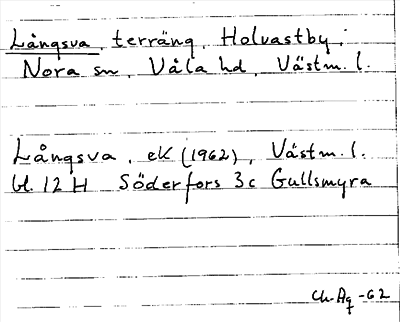 Långsva, terräng, Holvastby,
Nora sn, Våla hd, Västm. l.
Långsva, ek (1962), Västm. l.
bl. 12 H Söderfors 3c Gullsmyra
Ch. Ag -62